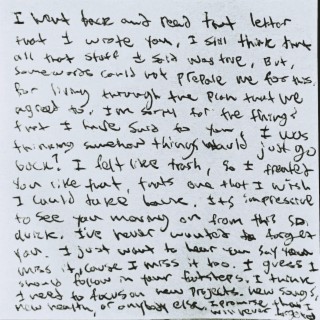 I went back and read that letter
that I wrote you, I still think that
all that stuff I said was true, But,
some words could not prepare me for this.
For living through the plan that we
agreed to, I'm sorry for the things
that I have said to you, I was
thinking somehow things would just go
back? I felt like trash, so I treated
you like that, that's one that I wish
I could take back. It's impressive
to see you moving on from this so
quick. I've never wanted to forget
you. I just want to hear you say you
miss it, cause I miss it too. I guess I
should follow in your footsteps. I think
I need to focus on new projects, new songs,
new health, or anybody else. I promise that I
will never forget